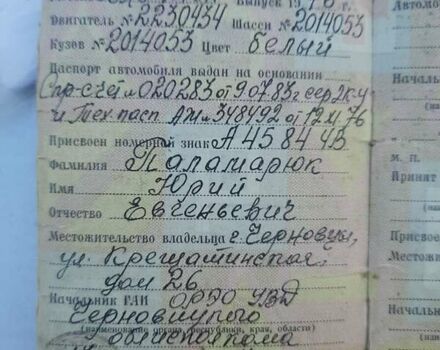 Выпуск 19
Двигатель № 2230434 Шасси № 2014053
Кузов № 2014053 Цвет белый
Паспорт автомобиля выдан на основании
Спр-счёт № 020283 от 9.07.83 г сер 2К-Ч
и Тех.пасп. АЖ № 348492 от 12.11.76
Присвоен номерной знак А 45 84 ЧВ
Фамилия Паламарюк
Имя Юрий
Отчество Евгеньевич
Местожительство владельца г. Черновцы,
ул. Крещатинская,
дом 26
Начальник ГАИ ОРЭО УВД
Черновицкого
(наименование органа, республики, края, области)
облисполкома
Автомо
Начальн
(на
М. П.
Принят
(наи
Присвое
Местожи
Начальн